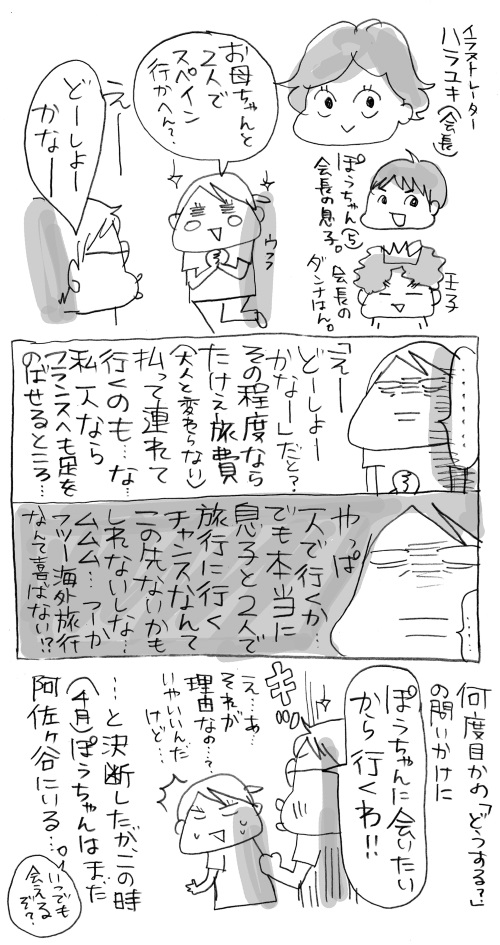 イラストレーター
ハラユキ(会長)
ぽうちゃん(5)
会長の息子。
王子
会長の
ダンナはん。
お母ちゃんと
2人で
スペイン
行かへん?
ウフフ
えーー
どーしよー
かなーー
………
「えーー
どーしよー
かなー」だと?
その程度なら
たけえ旅費
(大人と変わらない)
払って連れて
行くのも…な…
私一人なら
フランスへも足を
のばせるところ…
やっぱ
一人で行くか…
でも本当に
息子と2人で
旅行に行く
チャンスなんて
この先ないかも
しれないしな…
ムムム…つーか
フツー海外旅行
なんて喜ばない!?
何度目かの「どうする?」
の問いかけに
ぽうちゃんに会いたい
から行くわ!!
キッ
え…あ…
それが
理由なの…?
いやいいんだ
けど…
…と決断したがこの時
(4月)ぽうちゃんはまだ
阿佐ヶ谷にいる…。
いつでも
会える
ぞ?